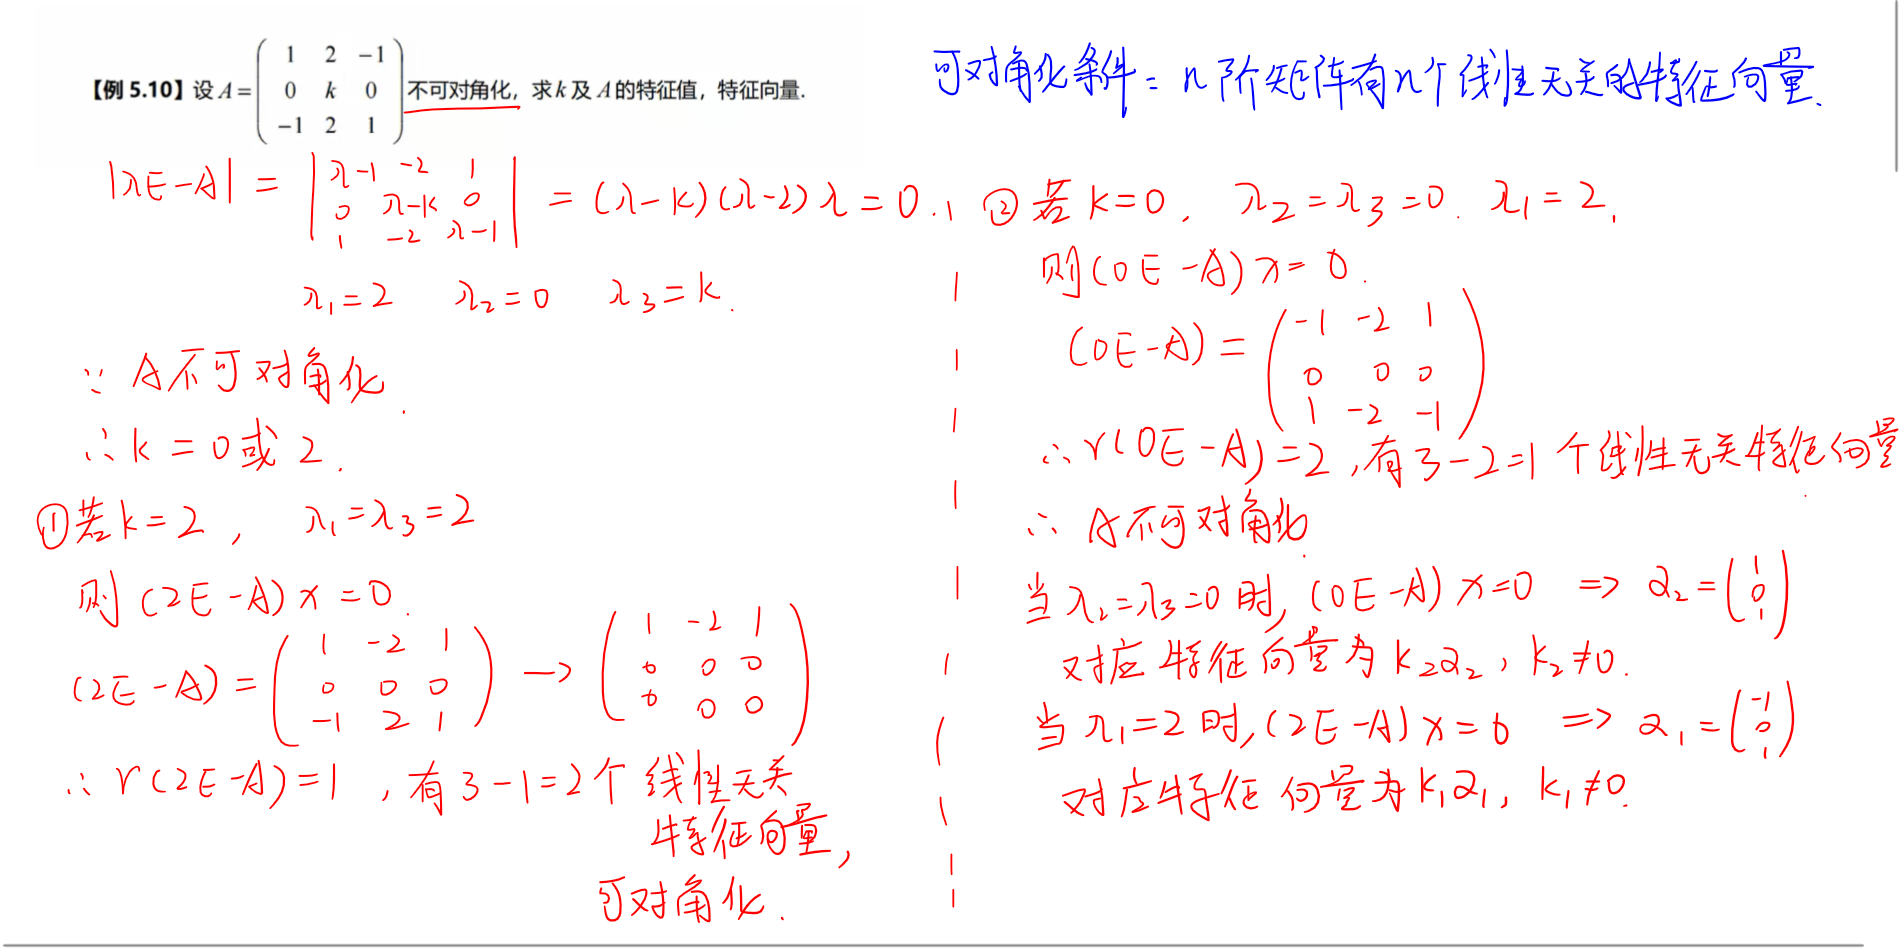 【例 5.10】设 A = ( 1 2 −1 ; 0 k 0 ; −1 2 1 ) 不可对角化，求 k 及 A 的特征值，特征向量.
可对角化条件 = n阶矩阵有n个线性无关的特征向量.
|λE-A| = | λ-1 -2 1 ; 0 λ-k 0 ; 1 -2 λ-1 | = (λ-k)(λ-2)λ = 0.
λ₁=2 λ₂=0 λ₃=k.
∵ A不可对角化.
∴ k = 0或 2.
①若k=2, λ₁=λ₃=2
则 (2E-A)x=0.
(2E-A) = ( 1 -2 1 ; 0 0 0 ; -1 2 1 ) → ( 1 -2 1 ; 0 0 0 ; 0 0 0 )
∴ r(2E-A)=1, 有3-1=2个线性无关
特征向量,
可对角化.
②若k=0, λ₂=λ₃=0. λ₁=2.
则(0E-A)x=0.
(0E-A) = ( -1 -2 1 ; 0 0 0 ; 1 -2 -1 )
∴ r(0E-A)=2, 有3-2=1个线性无关特征向量.
∴ A不可对角化.
当λ₂=λ₃=0时, (0E-A)x=0 ⇒ α₂=( 1 ; 0 ; 1 )
对应特征向量为k₂α₂, k₂≠0.
当λ₁=2时, (2E-A)x=0 ⇒ α₁=( -1 ; 0 ; 1 )
对应特征向量为k₁α₁, k₁≠0.